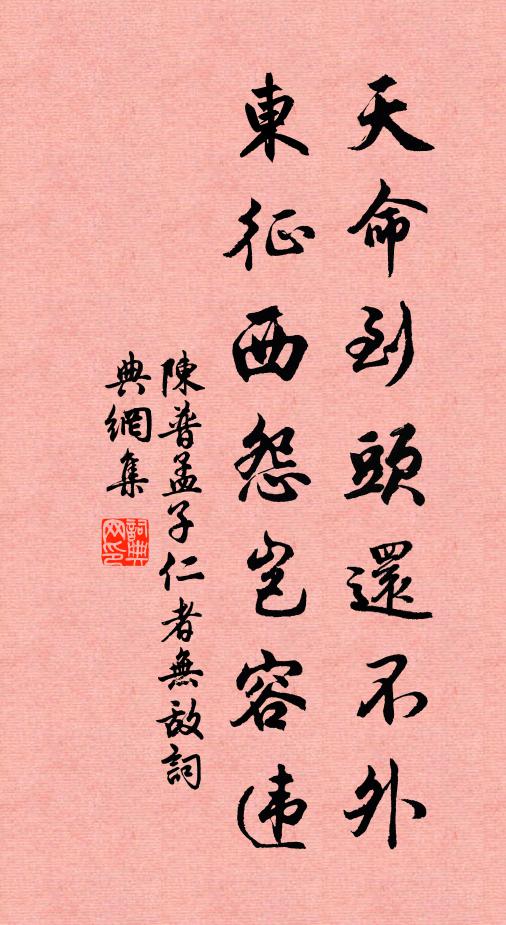 天命到頭還不外
東征西怨豈容違
陳普孟子仁者無敵詞
典網集
詞典網印